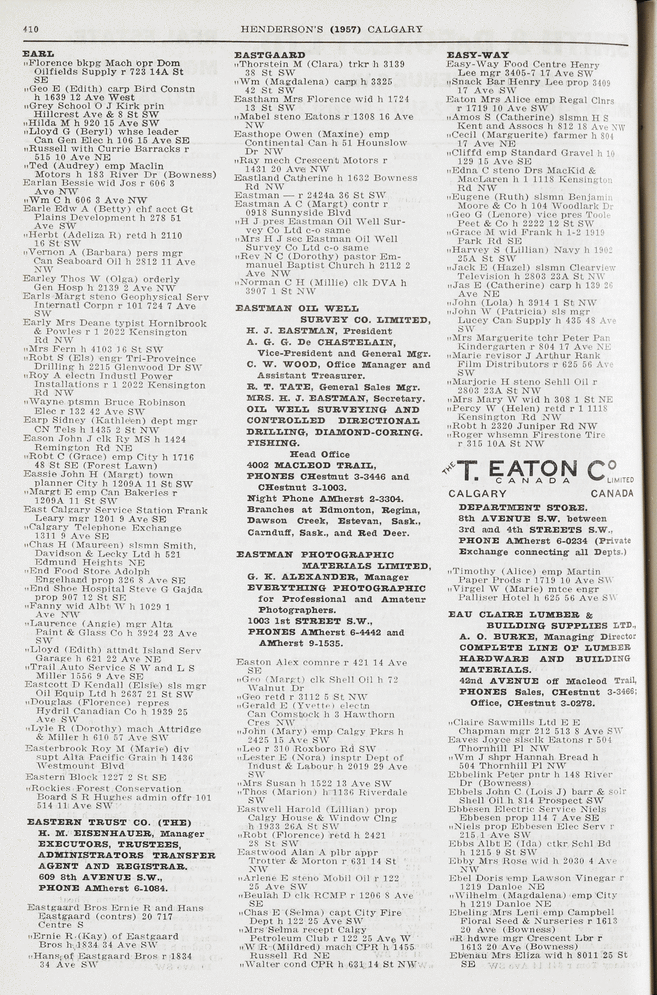 410
HENDERSON'S (1957) CALGARY
EARL
„Florence bkpg Mach opr Dom
Oilfields Supply r 723 14A St
SE
„Geo E (Edith) carp Bird Constn
h 1639 12 Ave West
„Grey School O J Kirk prin
Hillcrest Ave & 8 St SW
„Hilda M h 920 15 Ave SW
„Lloyd G (Beryl) whse leader
Can Gen Elec h 106 15 Ave SE
„Russell with Currie Barracks r
515 10 Ave NE
„Ted (Audrey) emp Maclin
Motors h 183 River Dr (Bowness)
Earlan Bessie wid Jos r 606 3
Ave NW
„Wm C h 606 3 Ave NW
Earle Edw A (Betty) chf acct Gt
Plains Development h 278 51
Ave SW
„Herbt (Adeliza R) retd h 2110
16 St SW
„Vernon A (Barbara) pers mgr
Can Seaboard Oil h 2812 11 Ave
NW
Earley Thos W (Olga) orderly
Gen Hosp h 2139 2 Ave NW
Earls Margt steno Geophysical Serv
Internatl Corpn r 101 724 7 Ave
SW
Early Mrs Deane typist Hornibrook
& Powles r 1 2022 Kensington
Rd NW
„Mrs Fern h 4103 16 St SW
„Robt S (Els) engr Tri-Proveince
Drilling h 2215 Glenwood Dr SW
„Roy A electn Industl Power
Installations r 1 2022 Kensington
Rd NW
„Wayne ptsmn Bruce Robinson
Elec r 132 42 Ave SW
Earp Sidney (Kathleen) dept mgr
CN Tels h 1435 2 St NW
Eason John J clk Ry MS h 1424
Remington Rd NE
„Robt C (Grace) emp City h 1716
48 St SE (Forest Lawn)
Eassie John H (Margt) town
planner City h 1209A 11 St SW
„Margt E emp Can Bakeries r
1209A 11 St SW
East Calgary Service Station Frank
Leary mgr 1201 9 Ave SE
„Calgary Telephone Exchange
1311 9 Ave SE
„Chas H (Maureen) slsmn Smith,
Davidson & Lecky Ltd h 521
Edmund Heights NE
„End Food Store Adolph
Engelhard prop 326 8 Ave SE
„End Shoe Hospital Steve G Gajda
prop 907 12 St SE
„Fanny wid Albt W h 1029 1
Ave NW
„Laurence (Angie) mgr Alta
Paint & Glass Co h 3924 23 Ave
SW
„Lloyd (Edith) attndt Island Serv
Garage h 621 22 Ave NE
„Trail Auto Service S W and L S
Miller 1556 9 Ave SE
Eastcott D Kendall (Elsie) sls mgr
Oil Equip Ltd h 2637 21 St SW
„Douglas (Florence) repres
Hydril Canadian Co h 1939 25
Ave SW
„Lyle R (Dorothy) mach Attridge
& Miller h 610 57 Ave SW
Easterbrook Roy M (Marie) div
supt Alta Pacific Grain h 1436
Westmount Blvd
Eastern Block 1227 2 St SE
„Rockies Forest Conservation
Board S R Hughes admin offr 101
514 11 Ave SW
EASTERN TRUST CO. (THE)
H. M. EISENHAUER, Manager
EXECUTORS, TRUSTEES,
ADMINISTRATORS TRANSFER
AGENT AND REGISTRAR.
609 8th AVENUE S.W.,
PHONE AMherst 6-1084.
Eastgaard Bros Ernie R and Hans
Eastgaard (contrs) 20 717
Centre S
„Ernie R (Kay) of Eastgaard
Bros h 1834 34 Ave SW
„Hans of Eastgaard Bros r 1834
34 Ave SW
EASTGAARD
„Thorstein M (Clara) trkr h 3139
38 St SW
„Wm (Magdalena) carp h 3325
42 St SW
Eastham Mrs Florence wid h 1724
13 St SW
„Mabel steno Eatons r 1308 16 Ave
NW
Easthope Owen (Maxine) emp
Continental Can h 51 Hounslow
Dr NW
„Ray mech Crescent Motors r
1431 20 Ave NW
Eastland Catherine h 1632 Bowness
Rd NW
Eastman — r 2424a 36 St SW
Eastman A C (Margt) contr r
0918 Sunnyside Blvd
„H J pres Eastman Oil Well Sur-
vey Co Ltd c-o same
„Mrs H J sec Eastman Oil Well
Survey Co Ltd c-o same
„Rev N C (Dorothy) pastor Em-
manuel Baptist Church h 2112 2
Ave NW
„Norman C H (Millie) clk DVA h
3907 1 St NW
EASTMAN OIL WELL
SURVEY CO. LIMITED,
H. J. EASTMAN, President
A. G. G. De CHASTELAIN,
Vice-President and General Mgr.
C. W. WOOD, Office Manager and
Assistant Treasurer.
R. T. TATE, General Sales Mgr.
MRS. H. J. EASTMAN, Secretary.
OIL WELL SURVEYING AND
CONTROLLED DIRECTIONAL
DRILLING, DIAMOND-CORING.
FISHING.
Head Office
4002 MACLEOD TRAIL,
PHONES CHestnut 3-3446 and
CHestnut 3-1003.
Night Phone AMherst 2-3304.
Branches at Edmonton, Regina,
Dawson Creek, Estevan, Sask.,
Carnduff, Sask., and Red Deer.
EASTMAN PHOTOGRAPHIC
MATERIALS LIMITED,
G. K. ALEXANDER, Manager
EVERYTHING PHOTOGRAPHIC
for Professional and Amateur
Photographers.
1003 1st STREET S.W.,
PHONES AMherst 6-4442 and
AMherst 9-1535.
Easton Alex comnre r 421 14 Ave
SE
„Geo (Margt) clk Shell Oil h 72
Walnut Dr
„Geo retd r 3112 5 St NW
„Gerald E (Yvette) electn
Can Comstock h 3 Hawthorn
Cres NW
„John (Mary) emp Calgy Pkrs h
2425 15 Ave SW
„Leo r 310 Roxboro Rd SW
„Lester E (Nora) insptr Dept of
Indust & Labour h 2019 29 Ave
SW
„Mrs Susan h 1522 13 Ave SW
„Thos (Marion) h 1136 Riverdale
SW
Eastwell Harold (Lillian) prop
Calgy House & Window Clng
h 1933 26A St SW
„Robt (Florence) retd h 2421
28 St SW
Eastwood Alan A plbr appr
Trotter & Morton r 631 14 St
NW
„Arlene E steno Mobil Oil r 122
25 Ave SW
„Beulah D clk RCMP r 1206 8 Ave
SE
„Chas E (Selma) capt City Fire
Dept h 122 25 Ave SW
„Mrs Selma recept Calgy
Petroleum Club r 122 25 Ave W
„W R (Mildred) mach CPR h 1455
Russell Rd NE
„Walter cond CPR h 631 14 St NW
EASY-WAY
Easy-Way Food Centre Henry
Lee mgr 3405-7 17 Ave SW
„Snack Bar Henry Lee prop 3409
17 Ave SW
Eaton Mrs Alice emp Regal Clnrs
r 1719 10 Ave SW
„Amos S (Catherine) slsmn H S
Kent and Assocs h 812 18 Ave NW
„Cecil (Marguerite) farmer h 804
17 Ave NE
„Cliffd emp Standard Gravel h 10
129 15 Ave SE
„Edna C steno Drs MacKid &
MacLaren h 1 1118 Kensington
Rd NW
„Eugene (Ruth) slsmn Benjamin
Moore & Co h 104 Woodlark Dr
„Geo G (Lenore) vice pres Toole
Peet & Co h 2222 12 St SW
„Grace M wid Frank h 1-2 1919
Park Rd SE
„Harvey S (Lillian) Navy h 1902
25A St SW
„Jack E (Hazel) slsmn Clearview
Television h 2803 23A St NW
„Jas E (Catherine) carp h 139 26
Ave NE
„John (Lola) h 3914 1 St NW
„John W (Patricia) sls mgr
Lucey Can Supply h 435 48 Ave
SW
„Mrs Marguerite tchr Peter Pan
Kindergarten r 804 17 Ave NE
„Marie revisor J Arthur Rank
Film Distributors r 625 56 Ave
SW
„Marjorie H steno Sehll Oil r
2803 23A St NW
„Mrs Mary W wid h 308 1 St NE
„Percy W (Helen) retd r 1 1118
Kensington Rd NW
„Robt h 2320 Juniper Rd NW
„Roger whsemn Firestone Tire
r 315 10A St NW
THE T. EATON Co LIMITED
CANADA
CALGARY CANADA
DEPARTMENT STORE.
8th AVENUE S.W. between
3rd and 4th STREETS S.W.,
PHONE AMherst 6-0234 (Private
Exchange connecting all Depts.)
„Timothy (Alice) emp Martin
Paper Prods r 1719 10 Ave SW
„Virgel W (Marie) mtce engr
Palliser Hotel h 625 56 Ave SW
EAU CLAIRE LUMBER &
BUILDING SUPPLIES LTD.,
A. O. BURKE, Managing Director
COMPLETE LINE OF LUMBER
HARDWARE AND BUILDING
MATERIALS.
42nd AVENUE off Macleod Trail,
PHONES Sales, CHestnut 3-3466;
Office, CHestnut 3-0278.
„Claire Sawmills Ltd E E
Chapman mgr 212 513 8 Ave SW
Eaves Joyce slsclk Eatons r 504
Thornhill Pl NW
„Wm J shpr Hannah Bread h
504 Thornhill Pl NW
Ebbelink Peter pntr h 148 River
Dr (Bowness)
Ebbels John C (Lois J) barr & solr
Shell Oil h 814 Prospect SW
Ebbesen Electric Service Niels
Ebbesen prop 114 7 Ave SE
„Niels prop Ebbesen Elec Serv r
215 1 Ave SW
Ebbs Albt E (Ida) ctkr Schl Bd
h 1215 9 St SW
Ebby Mrs Rose wid h 2030 4 Ave
NW
Ebel Doris emp Lawson Vinegar r
1219 Danloe NE
„Wilhelm (Magdalena) emp City
h 1219 Danloe NE
Ebeling Mrs Leni emp Campbell
Floral Seed & Nurseries r 1613
20 Ave (Bowness)
„R hdwre mgr Crescent Lbr r
1613 20 Ave (Bowness)
Ebenau Mrs Eliza wid h 8011 25 St
SE